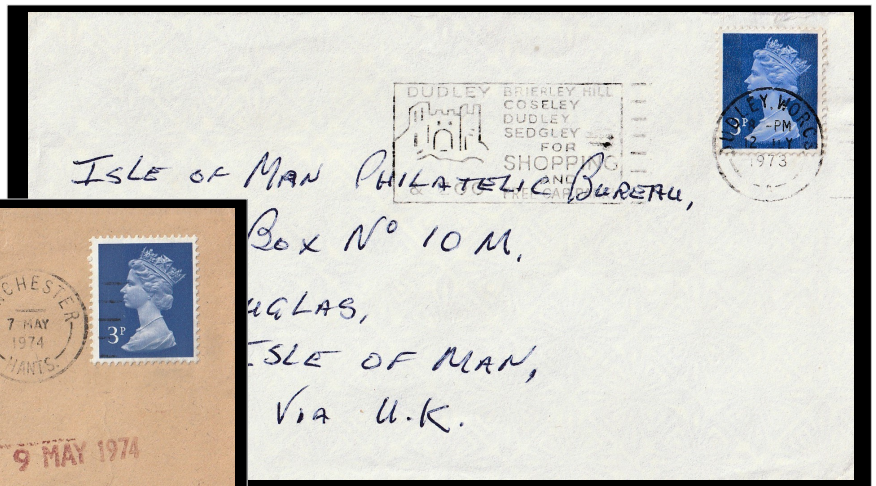 DUDLEY
BRIERLEY HILL
COSELEY
DUDLEY
SEDGLEY
FOR
SHOPPING
AND
FREE CAR
& ZOO
3P
DUDLEY, WORCS
-PM
12
1973
ISLE OF MAN PHILATELIC BUREAU,
BOX Nº 10 M,
UGLAS,
ISLE OF MAN,
VIA U.K.
CHESTER
7 MAY
1974
HANTS.
3P
9 MAY 1974